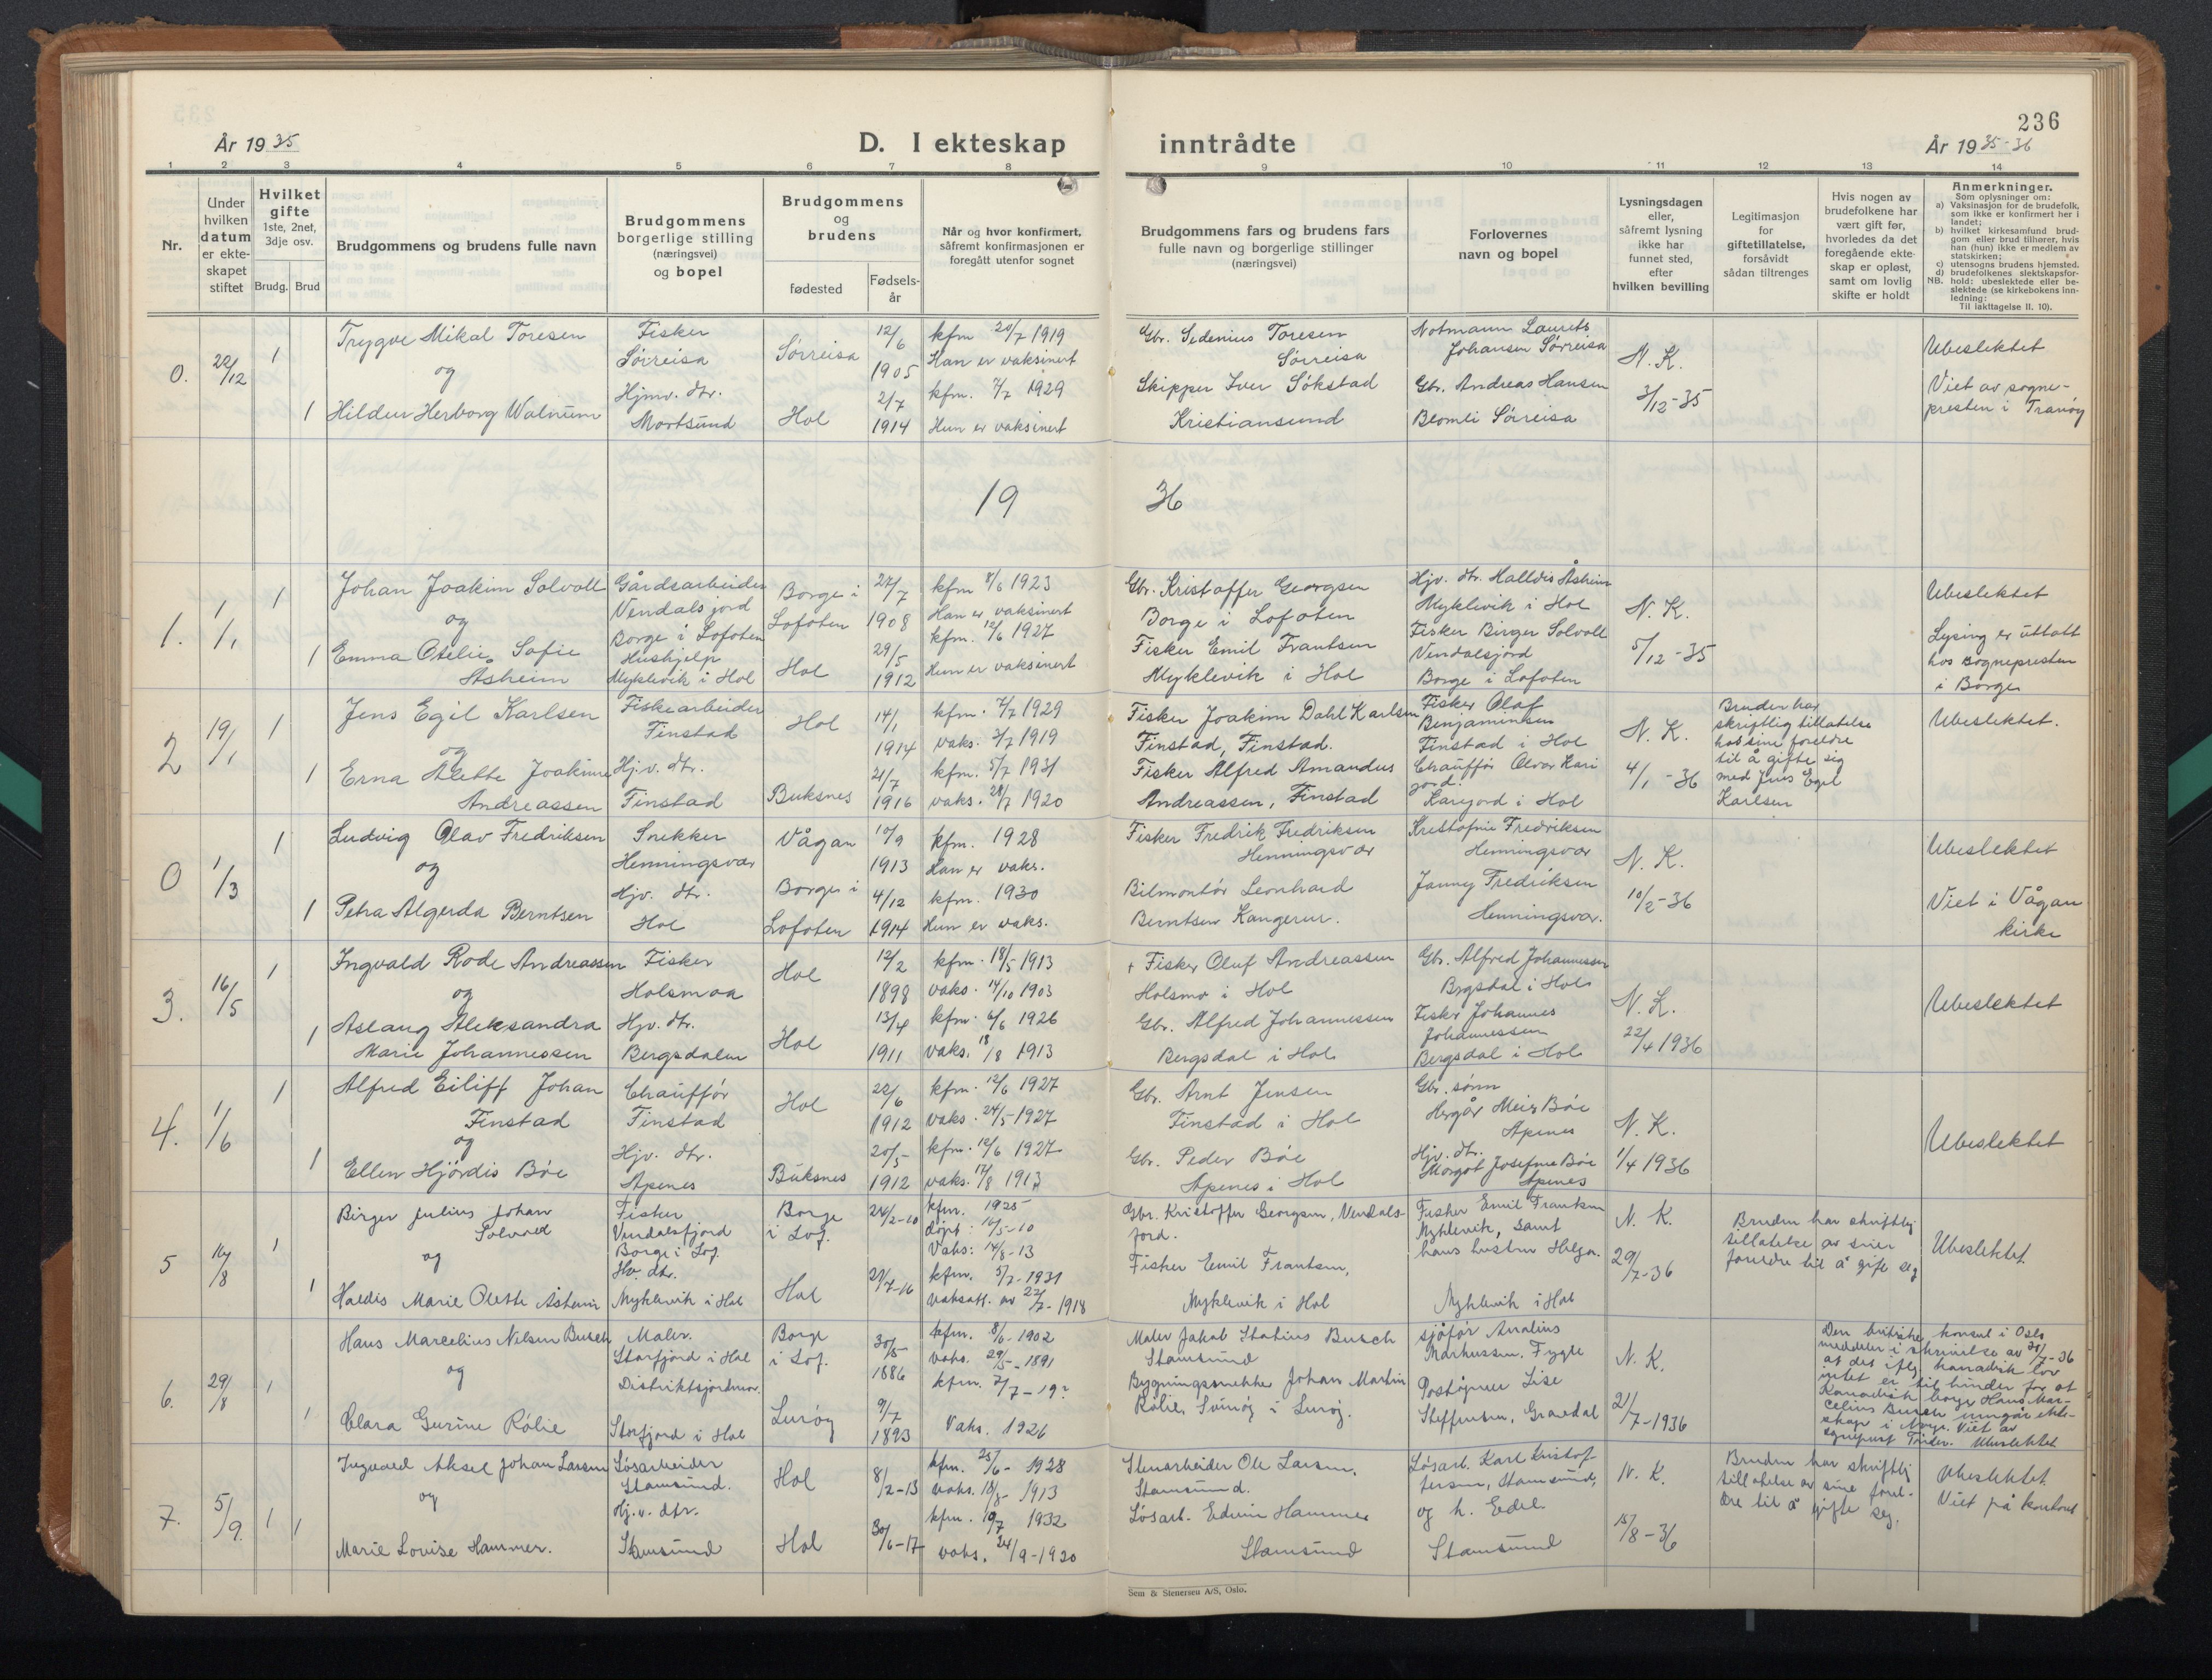 236
År 1935
D. I ekteskap inntrådte
År 1935-36
1 2 3 4 5 6 7 8 9 10 11 12 13 14
Nr.
Under hvilken datum er ekte-skapet stiftet
Hvilket gifte 1ste, 2net, 3dje osv.
Brudg. Brud
Brudgommens og brudens fulle navn
Brudgommens borgerlige stilling (næringsvei) og bopel
Brudgommens og brudens
fødested
Fødsels-år
Når og hvor konfirmert, såfremt konfirmasjonen er foregått utenfor sognet
Brudgommens fars og brudens fars fulle navn og borgerlige stillinger (næringsvei)
Forlovernes navn og bopel
Lysningsdagen eller, såfremt lysning ikke har funnet sted, efter hvilken bevilling
Legitimasjon for giftetillatelse, forsåvidt sådan tiltrenges
Hvis nogen av brudefolkene har vært gift før, hvorledes da det foregående ekte-skap er opløst, samt om lovlig skifte er holdt
Anmerkninger.
Som oplysninger om:
a) Vaksinasjon for de brudefolk, som ikke er konfirmert her i landet;
b) hvilket kirkesamfund brud-gom eller brud tilhører, hvis han (hun) ikke er medlem av statskirken;
c) utensogns brudens hjemsted.
d) brudefolkenes slektskapsfor-hold: ubeslektede eller be-slektede (se kirkebokens inn-ledning:
NB. Til iakttagelse II. 10).
0. 22/12 1
Trygve Mikal Toresen
og
1 Hildur Herborg Walnum
Fisker
Sørreisa
Hjmv. dtr.
Mortsund
Sørreisa
Hol
12/6
1905
2/7
1914
kfm 20/7 1919
Han er vaksinert
kfm. 7/7 1929
Hun er vaksinert
Gbr. Sedenius Toresen
Sørreisa
Skipper Iver Søkstad
Kristiansund
Notmann Laurits
Johansen Sørreisa
Gbr. Andreas Hansen
Blomli Sørreisa
N. K.
3/12-35
Ubeslektet
Viet av sogne-
presten i Tranøy
19 36
1. 1/1 1
Johan Joakim Solvoll
og
1 Emma Otelie Sofie
Åsheim
Gårdsarbeider
Vendalsjord
Borge i Lofoten
Hushjelp
Myklevik i Hol
Borge i
Lofoten
Hol
27/7
1908
29/5
1912
kfm 8/6 1923
Han er vaksinert
kfm. 12/6 1927
Hun er vaksinert
Gbr. Kristoffer Georgsen
Borge i Lofoten
Fisker Emil Frantsen
Myklevik i Hol
Hjv. dtr. Halldis Åsheim
Myklevik i Hol
Fisker Birger Solvoll
Vendalsjord
Borge i Lofoten
N. K.
5/12-35
Ubeslektet
Lysing er uttatt
hos sognepresten
i Borge
2 19/1 1
Jens Egil Karlsen
og
1 Erna Anette Joakime
Andreassen
Fiskearbeider
Finstad
Hj.v. dtr.
Finstad
Hol
Buksnes
14/1
1914
21/7
1916
kfm. 7/7 1929
vaks. 3/7 1919
kfm. 5/7 1931
vaks. 28/7 1920
Fisker Joakim Dahl Karlsen
Finstad, Finstad.
Fisker Alfred Amandus
Andreassen, Finstad
Fisker Olaf
Benjaminsen
Finstad i Hol
Chauffør Alvar Kari
jord.
Karijord i Hol
N. K.
4/1-36
Bruden har
skriftlig tillatelse
hos sine foreldre
til å gifte sig
med Jens Egil
Karlsen
Ubeslektet.
0 1/3 1
Ludvig Olav Fredriksen
og
1 Petra Algerda Berntsen
Snekker
Henningsvær
Hjv. dtr.
Hol
Vågan
Borge i
Lofoten
10/9
1913
4/12
1914
kfm. 1928
Han er vaks.
kfm. 1930
Hun er vaks.
Fisker Fredrik Fredriksen
Henningsvær
Bilmontør Leonhard
Berntsen Kangerur.
Kristofine Fredriksen
Henningsvær
Janny Fredriksen
Henningsvær.
N. K.
10/2-36
Ubeslektet
Viet i Vågan
kirke
3. 16/5 1
Ingvald Rode Andreassen
og
1 Aslaug Aleksandra
Marie Johannessen
Fisker
Holsmoa
Hjv. dtr.
Bergsdalen
Hol
Hol
12/2
1898
13/4
1911
kfm. 18/5 1913
vaks. 14/10 1903
kfm. 6/6 1926
vaks. 18/8 1913
+ Fisker Oluf Andreassen
Holsmo i Hol
Gbr. Alfred Johannessen
Bergsdal i Hol
Gbr. Alfred Johannessen
Bergsdal i Hol
Fisker Johannes
Johannessen
Bergsdal i Hol
N. K.
22/4 1936
Ubeslektet
4. 1/6 1
Alfred Eiliff Johan
Finstad
og
1 Ellen Hjördis Bøe
Chauffør
Finstad
Hjv. dtr.
Apenes
Hol
Buksnes
22/6
1912
20/5
1912
kfm. 12/6 1927
vaks. 24/5-1927
kfm. 12/6 1927
vaks. 17/8 1913
Gbr. Arnt Jensen
Finstad i Hol
Gbr. Peder Bøe
Apenes i Hol
Gbr. sønn
Hergår Meier Bøe
Apenes
Hjv. dtr.
Margot Josefine Bøe
Apenes
N. K.
1/4 1936
Ubeslektet
5 16/8 1
Birger Julius Johan
Solvoll
og
1 Haldis Marie Olette Åsheim
Fisker
Vendalsfjord
Borge i Lof.
Hv. dtr.
Myklevik i Hol
Borge
i Lof.
Hol
24/2-10
27/7-16
kfm. 1925
døpt: 16/5-10
Vaks: 14/8-13
kfm. 5/7-1931
vaksatt. av 22/7-1918
Gbr. Kristoffer Georgsen, Vendals-
fjord.
Fisker Emil Frantsen,
Myklevik i Hol
Fisker Emil Frantsen
Myklevik, samt
hans hustru Helga.
Myklevik i Hol
N. K.
29/7-36
Bruden har skriftlig
tillatelse av sine
foreldre til å gifte seg
Ubeslektet
6. 29/8 1
Hans Marcelius Nilsen Busch
og
1 Clara Gurine Rølie
Maler.
Storfjord i Hol
Distriktsjordmor.
Storfjord i Hol
Borge
i Lof.
Lurøy
30/5
1886
9/7
1893
kfm. 8/6-1902
vaks. 29/5-1891
kfm. 7/7-19?
Vaks. 1926
Maler Jakob Statius Busch
Stamsund
Bygningssnekker Johan Martin
Rølie, Svinøy i Lurøy.
sjåfør Analius
Markussen, Fygle
Poståpner Lise
Steffensen, Gravdal
N. K.
21/7-1936
Den britiske konsul i Oslo
meddeler i skrivelse av 31/7-36
at det iflg. kanadisk lov
intet er til hinder for at
Kanadisk borger Hans Mar-
celius Busch inngår ekte-
skap i Norge. Viet av
sogneprest Ubeslektet
7. 5/9. 1
Ingvald Aksel Johan Larsen
og
1 Marie Lovise Hammer.
Løsarbeider
Stamsund.
Hj.v. dtr.
Stamsund
Hol
Hol
8/2-13
30/6-17
kfm. 23/6-1928
vaks. 18/8-1913
kfm. 10/7 1932
vaks. 24/9-1920
Stenarbeider Ole Larsen,
Stamsund.
Løsarb. Edvin Hammer
Stamsund
Løsarb. Karl Kristof-
fersen, Stamsund,
og h. Edel
Stamsund
N. K.
15/8-36
Bruden har skriftlig
tillatelse av sine forel-
dre til å gifte seg.
Ubeslektet.
Viet på kontoret
Sem & Stenersen A/S, Oslo.